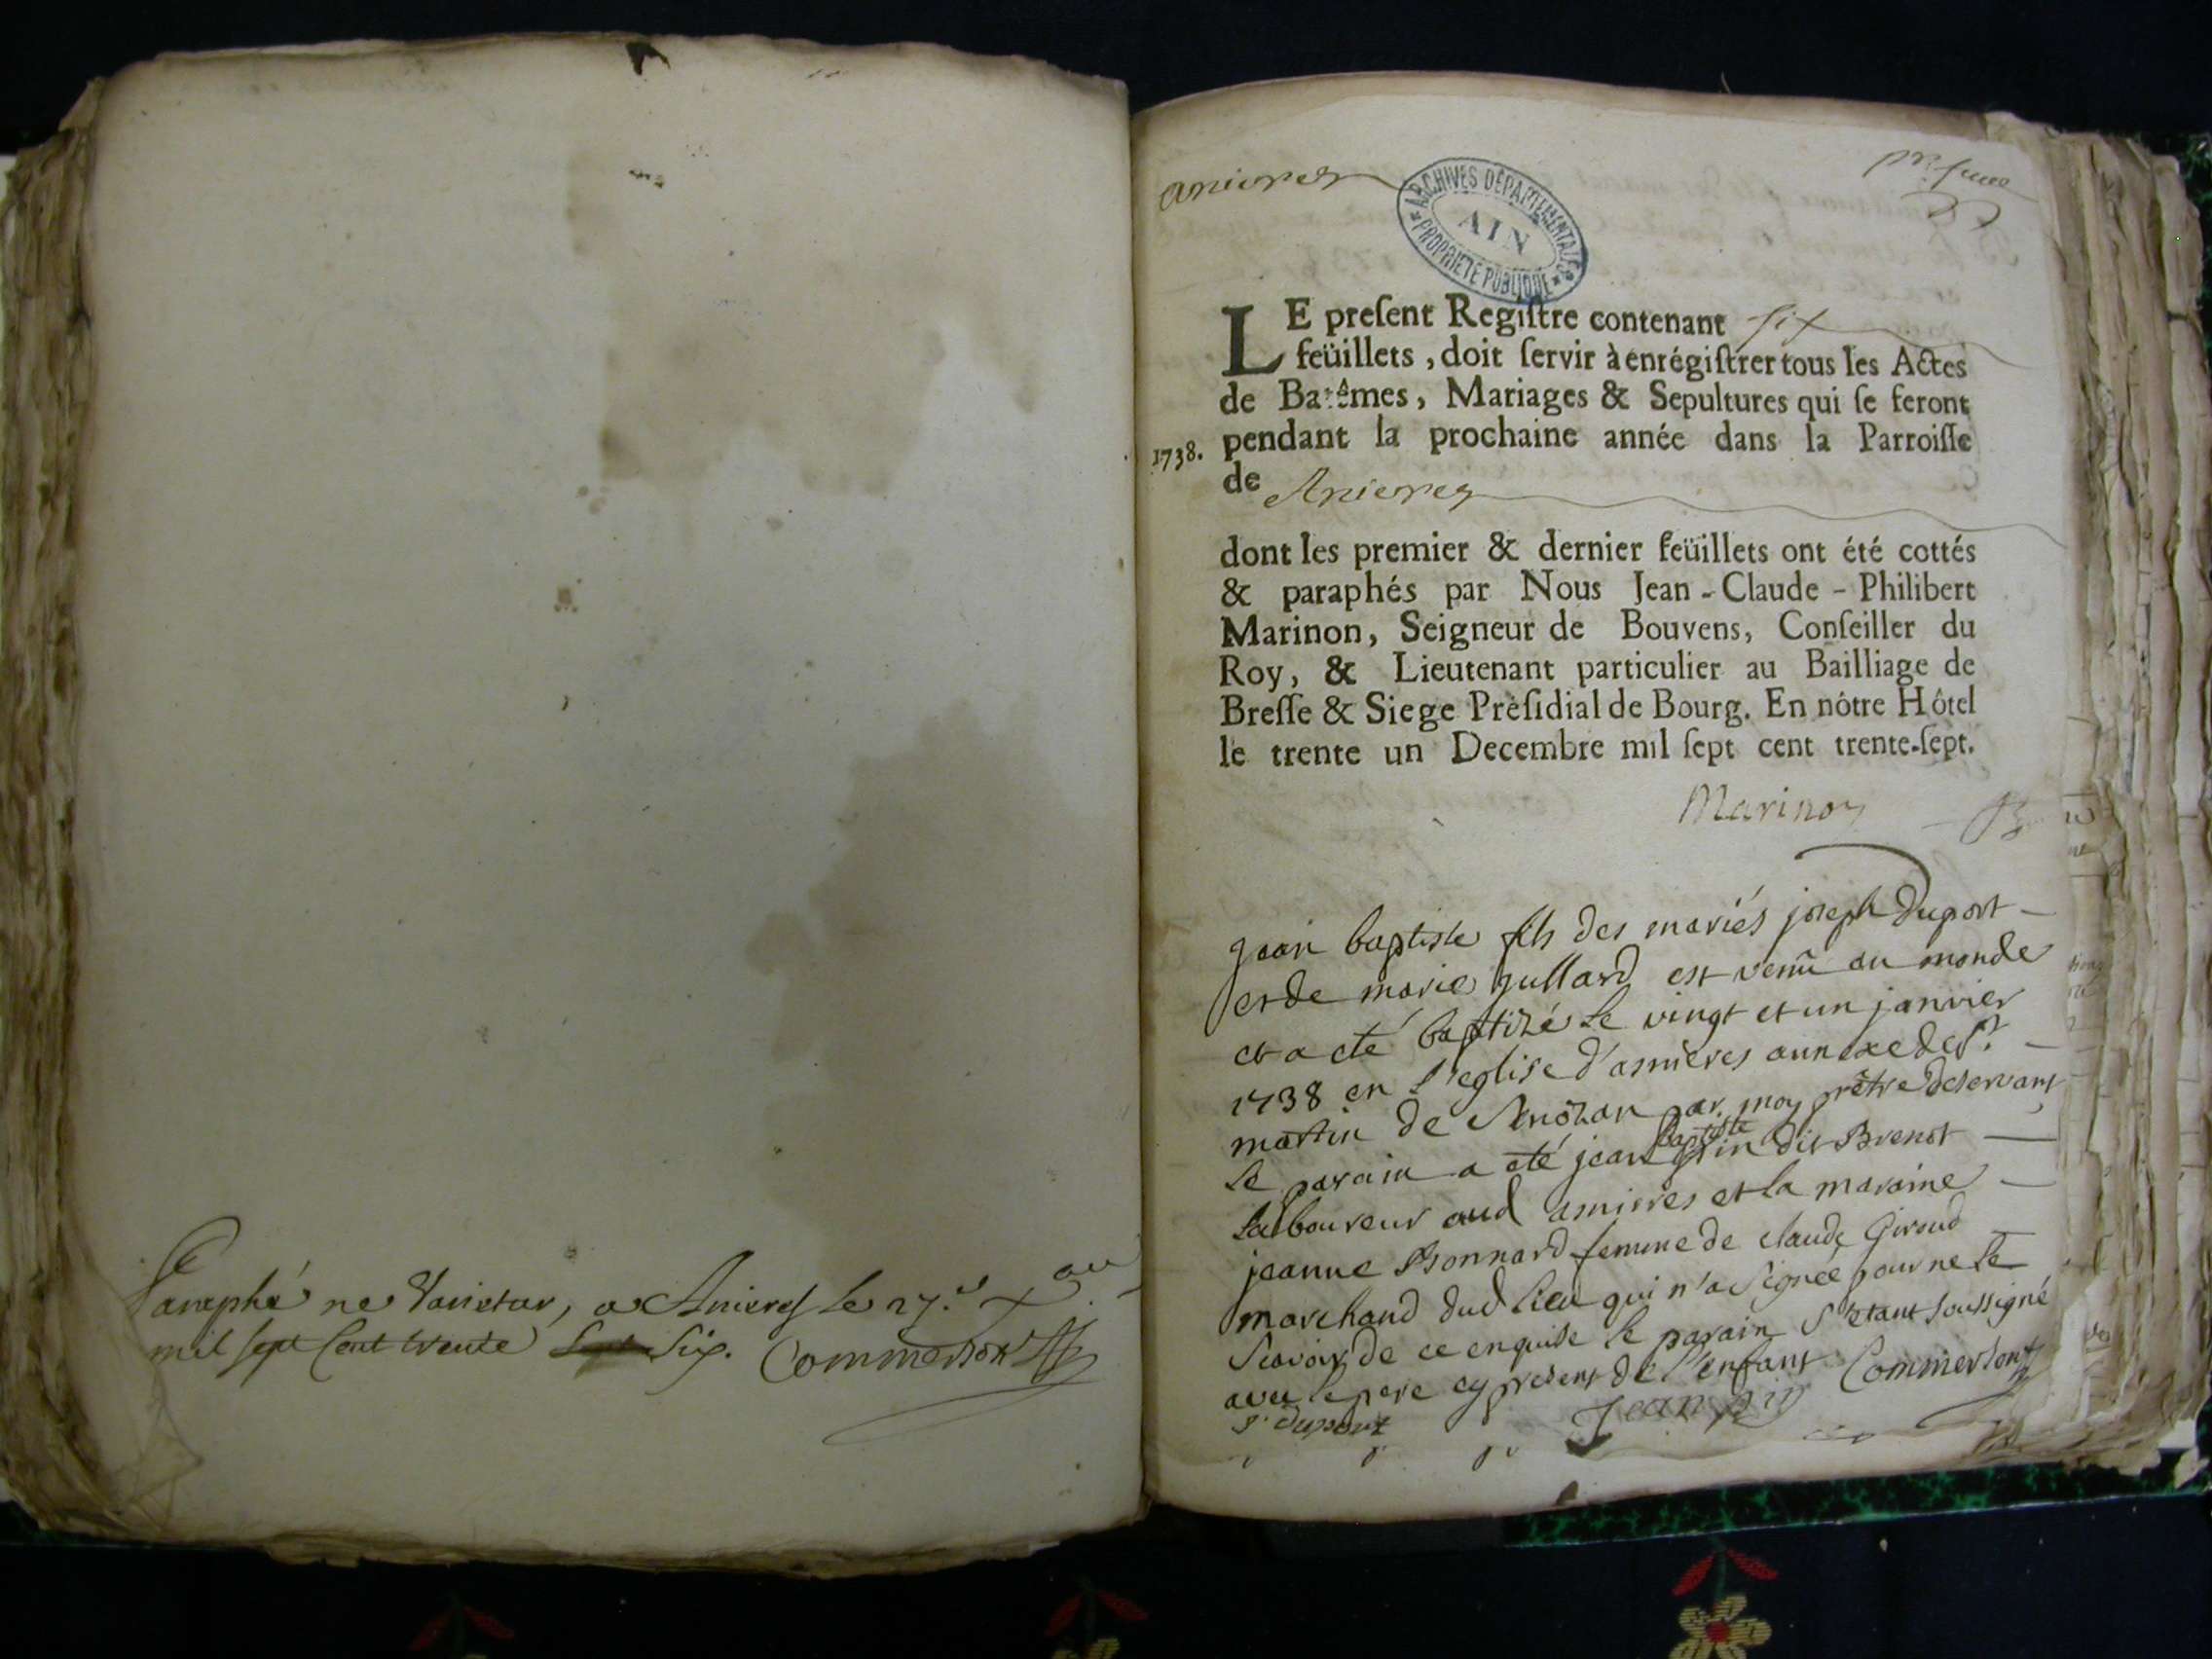 Paraphé ne Varietur, a Anieres le 27.e xbre
mil sept Cent trente Six. Commerson
Anieres
ARCHIVES DÉPARTEMENTALES
AIN
PROPRIÉTÉ PUBLIQUE
LE preſent Regiſtre contenant six
feüillets, doit ſervir à enrégiſtrer tous les Actes
de Batêmes, Mariages & Sepultures qui ſe feront
1738. pendant la prochaine année dans la Parroiſſe
de Anieres
dont les premier & dernier feüillets ont été cottés
& paraphés par Nous Jean-Claude-Philibert
Marinon, Seigneur de Bouvens, Conſeiller du
Roy, & Lieutenant particulier au Bailliage de
Breſſe & Siege Préſidial de Bourg. En nôtre Hôtel
le trente un Decembre mil ſept cent trente-ſept.
Marinon
jean baptiste fils des mariés joseph Duport
et de marie gullard est venu au monde
et a eté baptizé le vingt et un janvier
1738 en l'eglise d'asnieres annexe de St
martin de Senozan par moy prêtre deservant
le parain a eté jean baptiste pin dit Brenot
laboureur aud asnieres et la maraine
jeanne Bonnard femme de claude Giroud
marchand dud lieu qui n'a signée pour ne le
scavoir de ce enquise le parain s'etant soussigné
avec le pere cy present de l'enfant Commerson
J. Duport Jean pin